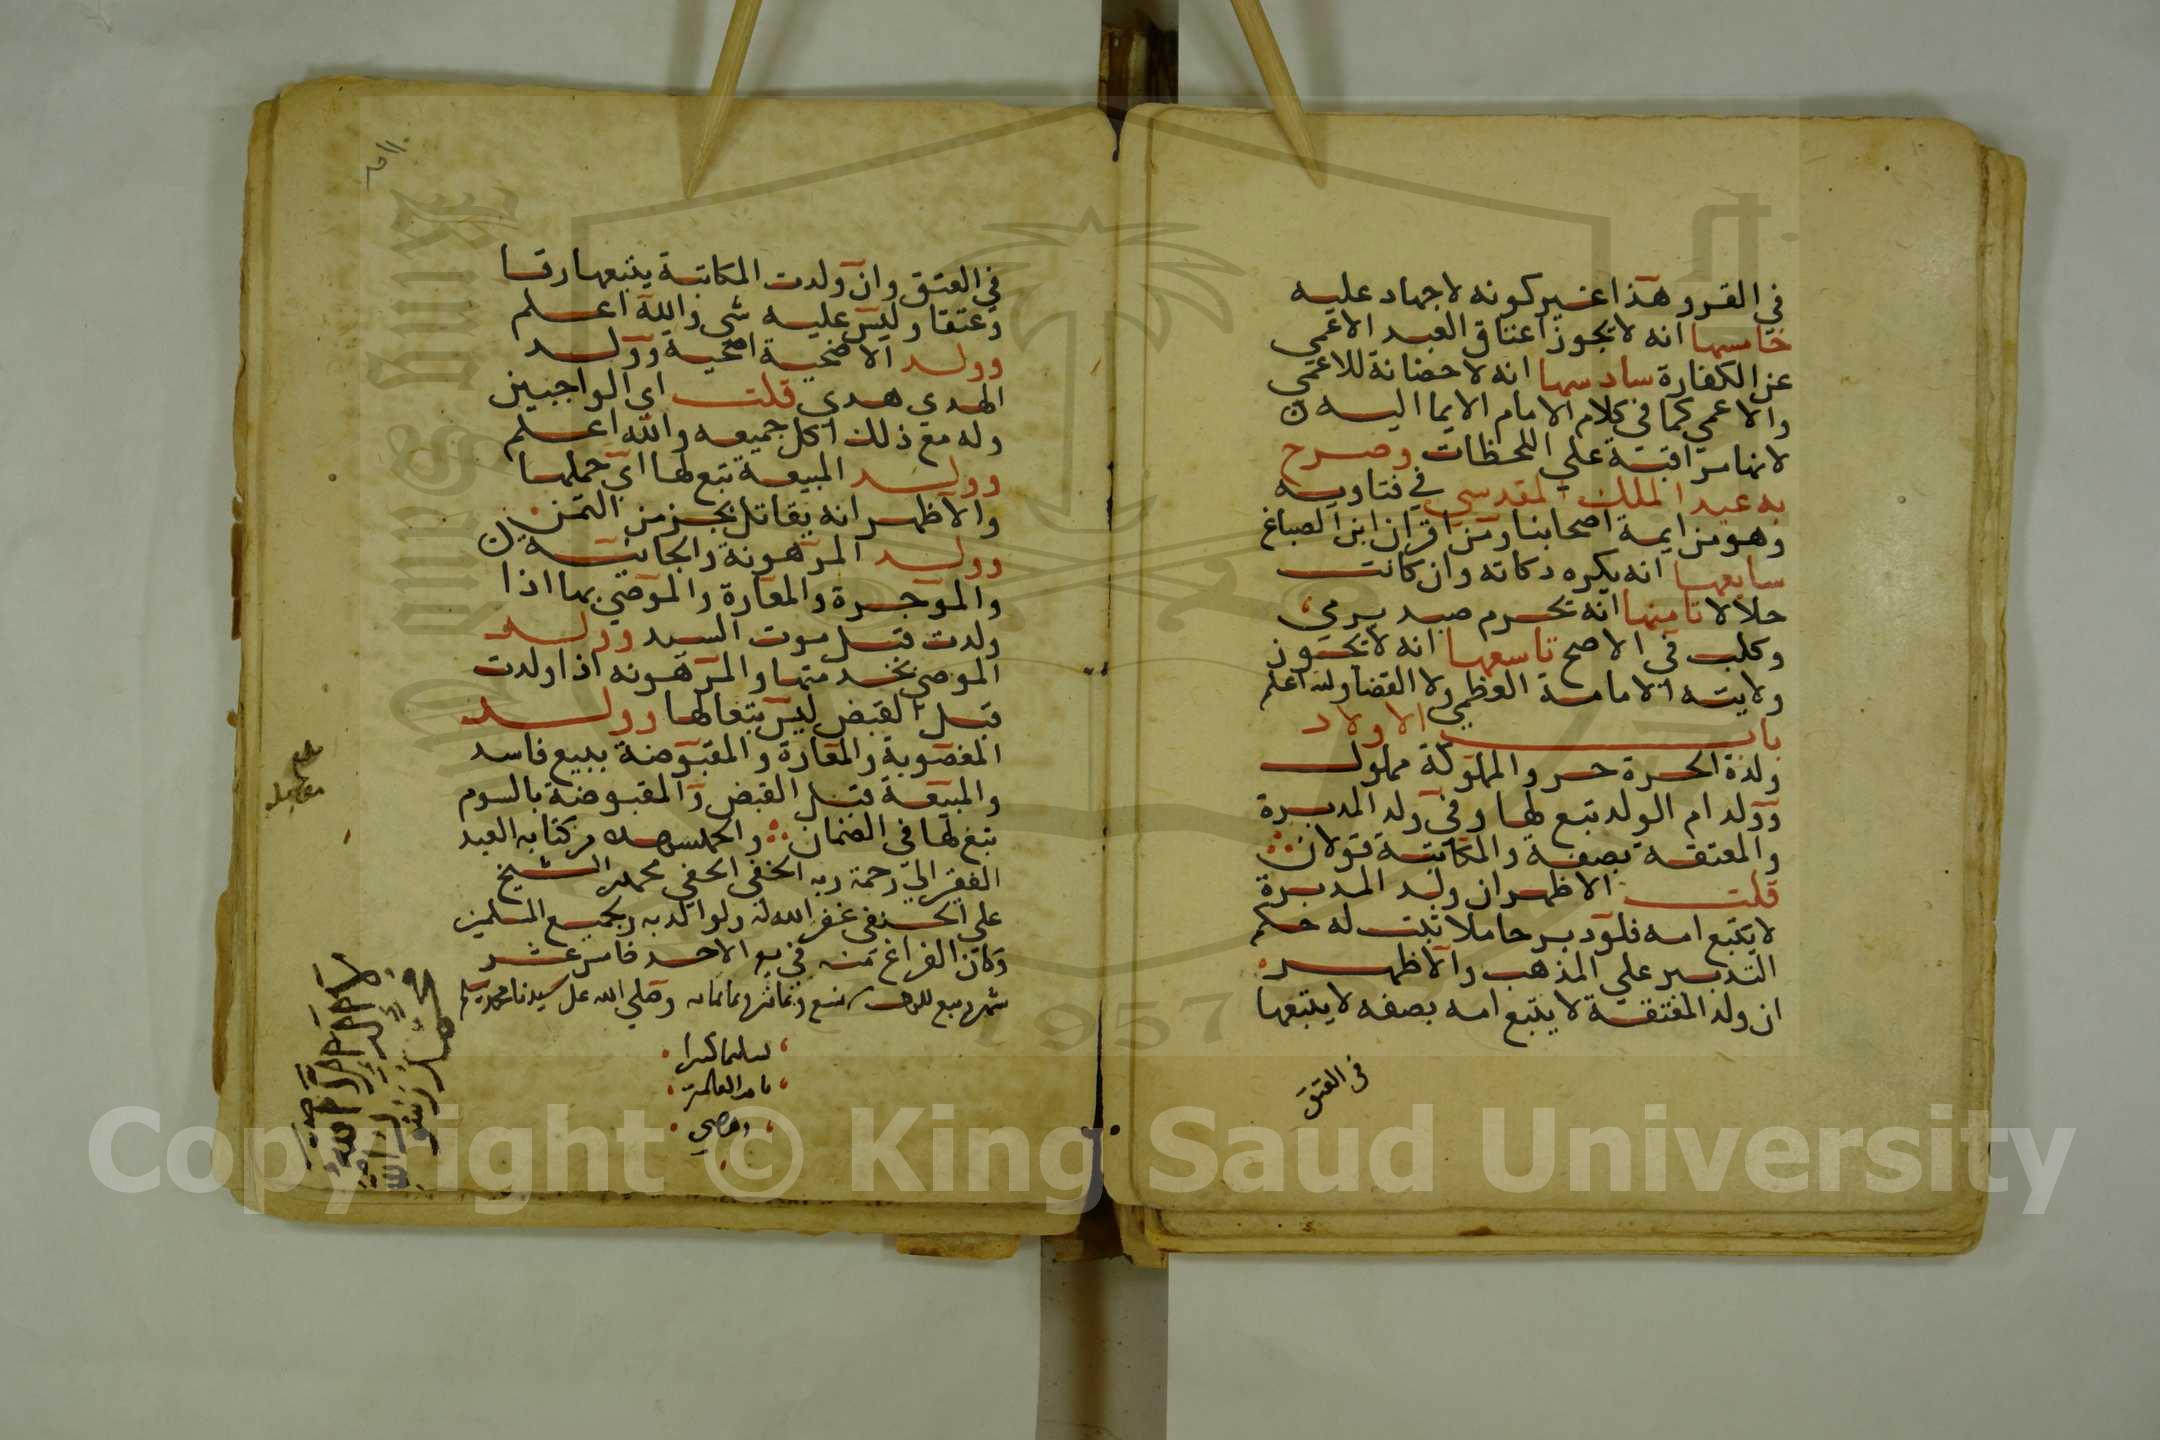 في الفرو هذا غير كونه لا جهاد عليه
خامسها انه لا يجوز اعتاق العبد الاعمي
عن الكفارة سادسها انه لا حضانة للاعمي
والاعمي كما في كلام الامام الايما اليه
لانها مراقبة علي اللحظات وصرح
به عبد الملك المقدسي في فتاويه
وهو من ايمة اصحابنا ومن اقران ابن الصباغ
سابعها انه يكره دكاته وان كانت
حلالا ثامنها انه تحرم صيد برمي
وكلب في الاصح تاسعها انه لا تجوز
ولايته الامامة العظمي ولا القضا والله اعلم
باب الاولاد
ولدة الحرة حر والمملوكة مملوك
وولد ام الولد تبع لها وفي ولد المدبرة
والمعتقة بصفة والمكاتبة قولان
قلت الاظهر ان ولد المدبرة
لا يتبع امه فلو دبر حاملا ثبت له حكم
التدبير علي المذهب والاظهر
ان ولد المعتقة لا يتبع امه بصفه لا يتبعها
في العتق
في العتق وان ولدت المكاتبة يتبعها رقا
وعتقا وليس عليه شي والله اعلم
وولد الاضحية اضحية وولد
الهدي هدي قلت اي الواجبين
وله مع ذلك اكل جميعه والله اعلم
وولد المبيعة تبع لها اي حملها
والاظهر انه يقابل بجز من الثمن
وولد المرهونة والجانية
والموجرة والمعارة والموصي بها اذا
ولدت قبل موت السيد وولد
الموصي بخدمتها والمرهونه اذا ولدت
قبل القبض ليس بتعا لها وولد
المغصوبة والمعارة والمقبوضة ببيع فاسد
والمبيعة قبل القبض والمقبوضة بالسوم
تبع لها في الضمان والحمد لله وحده من كتابه العبد
الفقير الي رحمة ربه الخفي الحفي محمد الشيخ
علي الحنفي غفر الله له ولوالديه ولجميع المسلمين
وكان الفراغ منه في يوم الاحد خامس عشر
شهر ربيع وثمانين وثمانمايه وصلي الله علي سيدنا محمد وسلم
تسليما كثيرا
رب العالمين
King Saud University
1957
Copyright © King Saud University